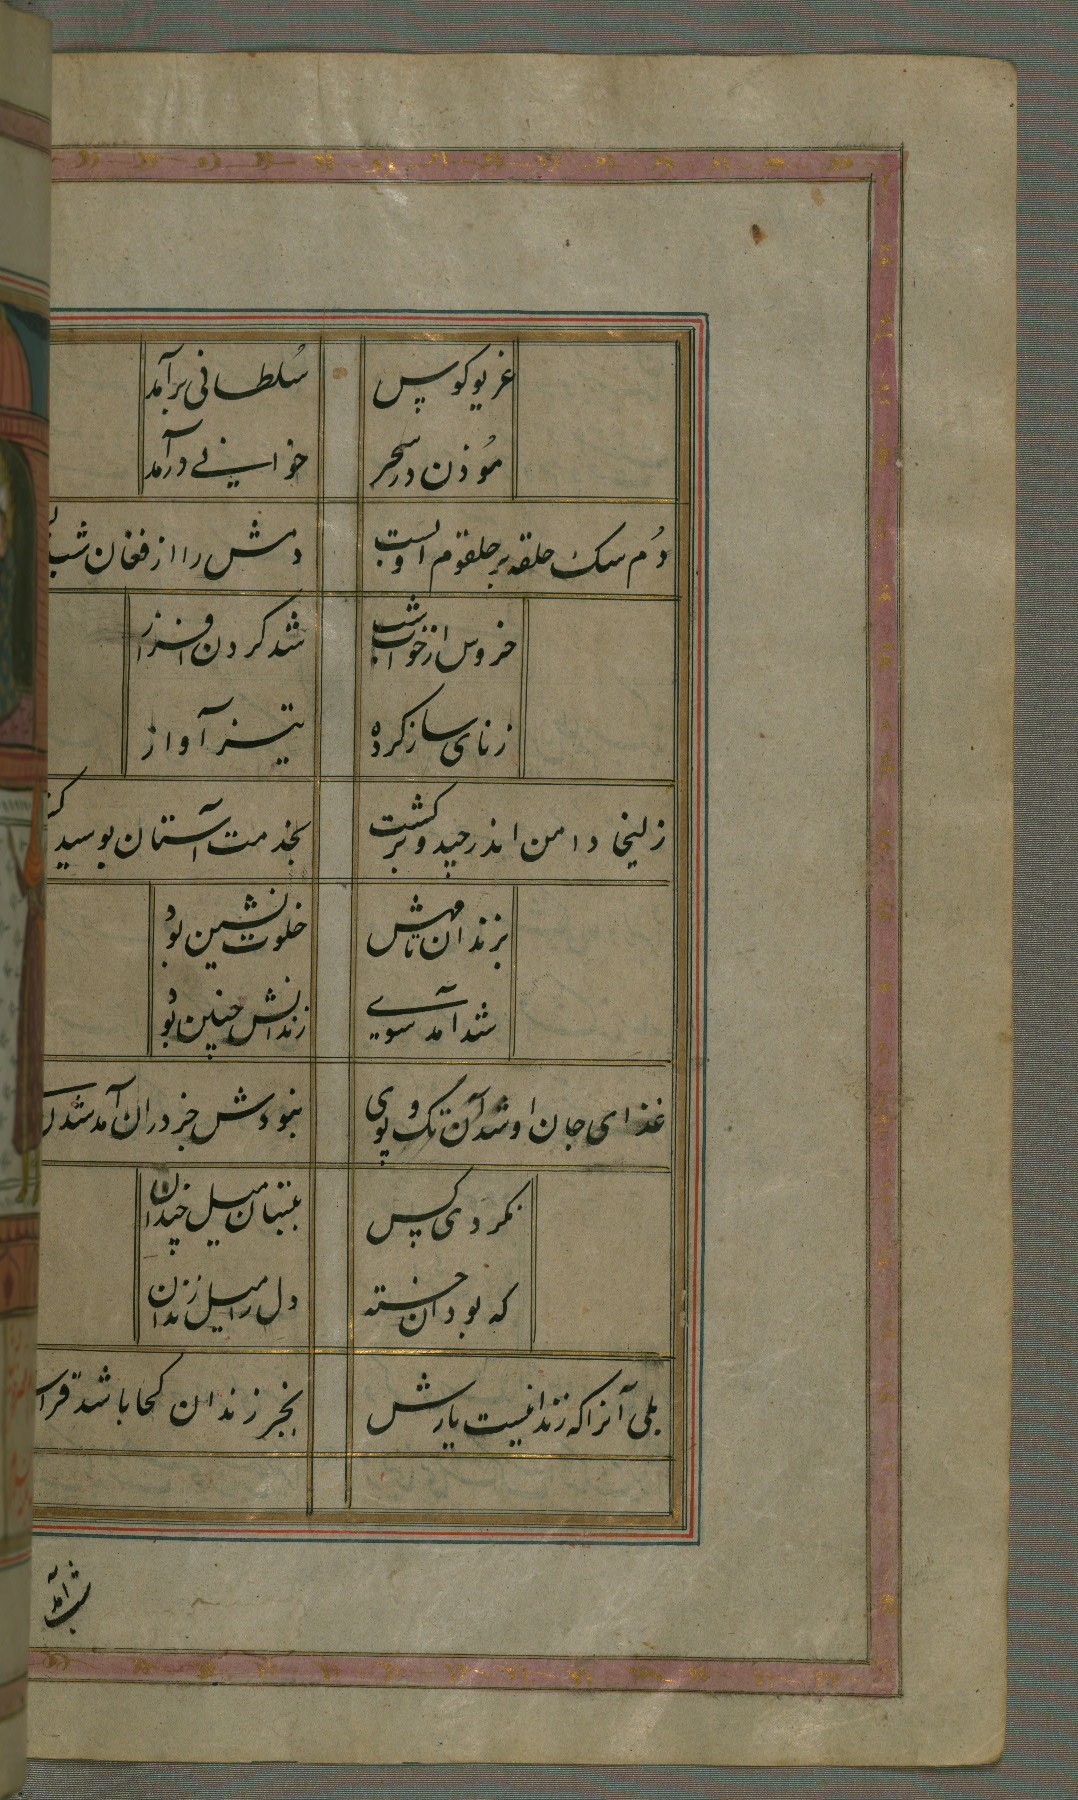 غریو کوس سلطانی برآمد
مؤذن در سحر خوانی درآمد
دم سک حلقه بر حلقوم او بست دمش را از فغان شب
خروس از خواب شب شد گردن افراز
زنای ساز کرده تیز آواز
زلیخا دامن اندر چید و برگشت بخدمت آستان بوسید
بزندان تا مهش خلوت نشین بود
شد آمد سوی زندانش چنین بود
غذای جان او شد آن تک و پوی نبودش جز در آن آمد شد
نکردی کس به بستان میل چندان
که بود آن خسته دل را میل زندان
بلی آنرا که زندانیست یارش بجز زندان کجا باشد
شب آمد